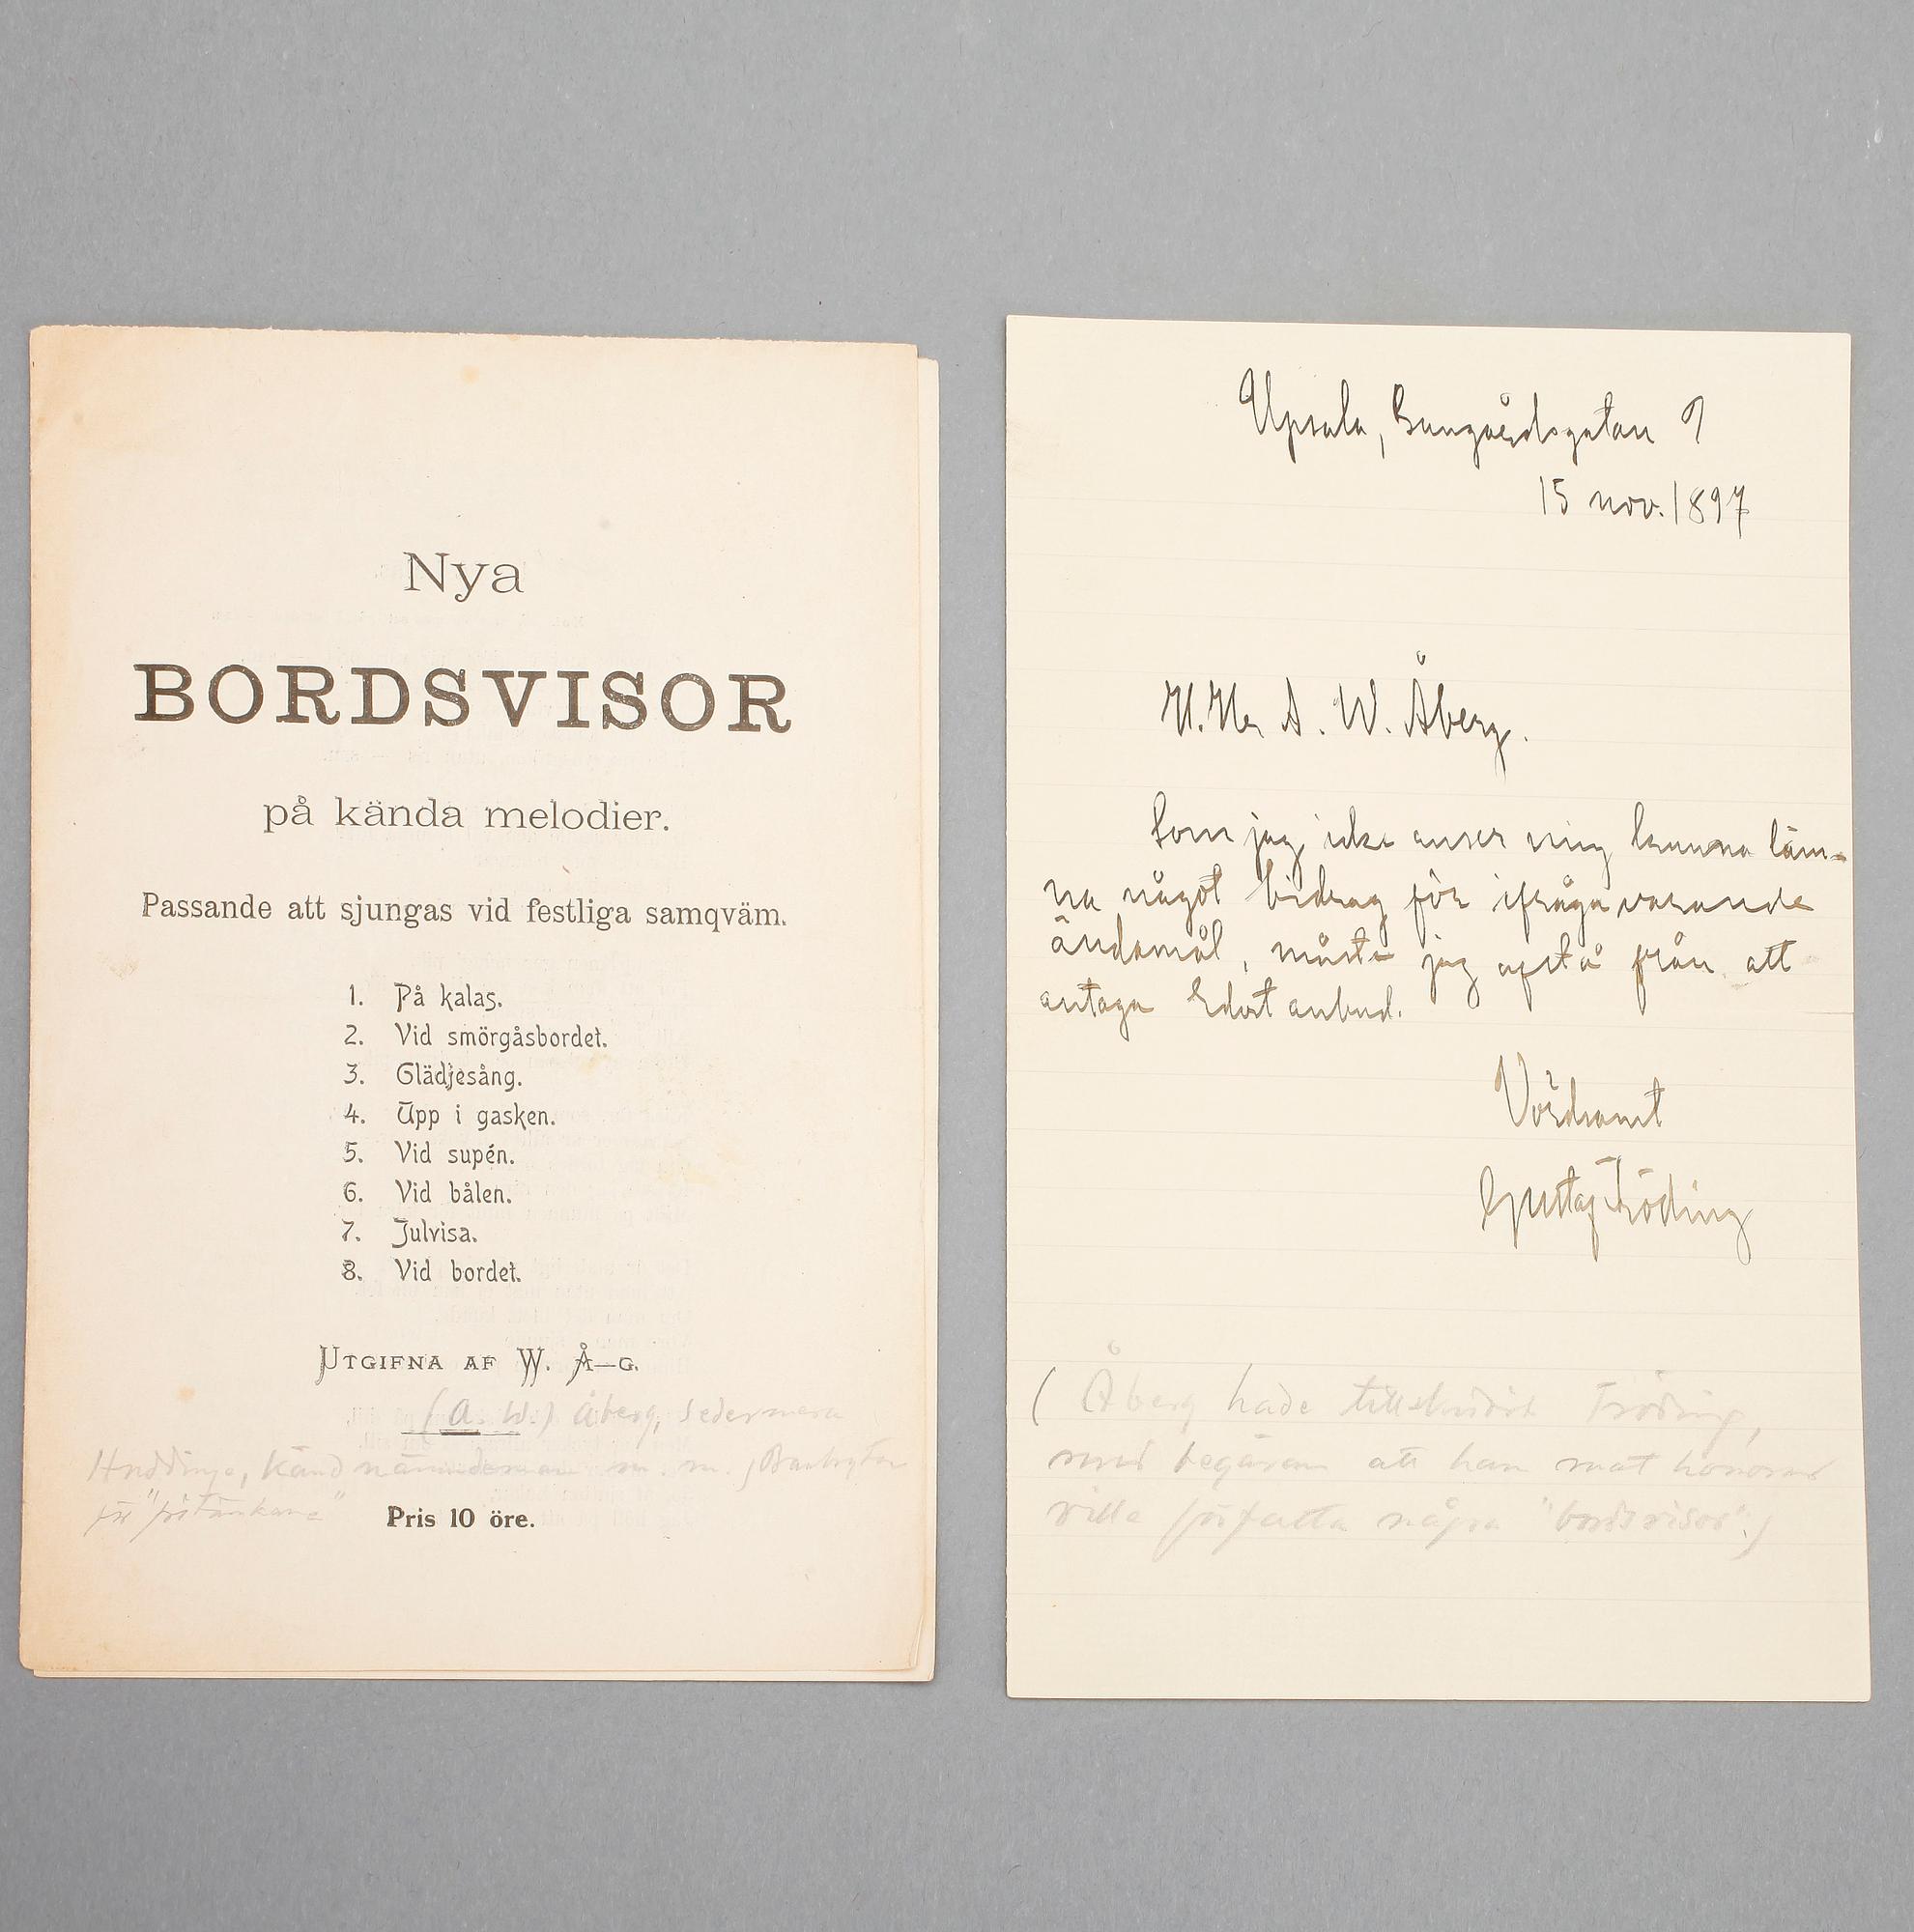 Nya
BORDSVISOR
på kända melodier.
Passande att sjungas vid festliga samqväm.
1. På kalas.
2. Vid smörgåsbordet.
3. Glädjesång.
4. Upp i gasken.
5. Vid supén.
6. Vid bålen.
7. Julvisa.
8. Vid bordet.
UTGIFNA AF W. Å—G.
(A. W.) Åberg, sedermera
Huddinge, känd m. m.
Pris 10 öre.
Upsala, Bangårdsgatan 9
15 nov. 1897
H. Hr A. W. Åberg.
Som jag icke anser mig kunna läm-
na något bidrag för ifrågavarande
ändamål, måste jag afstå från att
antaga Edert anbud.
Vördsamt
Gustaf Fröding
(Åberg hade tillskrifvit Fröding,
med begäran att han mot honorar
ville författa några "bordsvisor".)